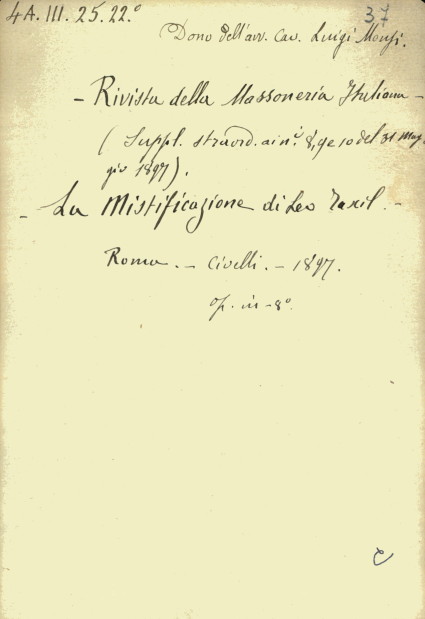 4A. III. 25. 22.° 37
Dono dell'avv. Cav. Luigi
- Rivista della Massoneria Italiana -
(Suppl. straord. ai n.i 8, 9 e 10 del 31 Mag-
gio 1897).
- La Mistificazione di Leo Taxil. -
Roma. - Civelli. - 1897.
op. in-8°.